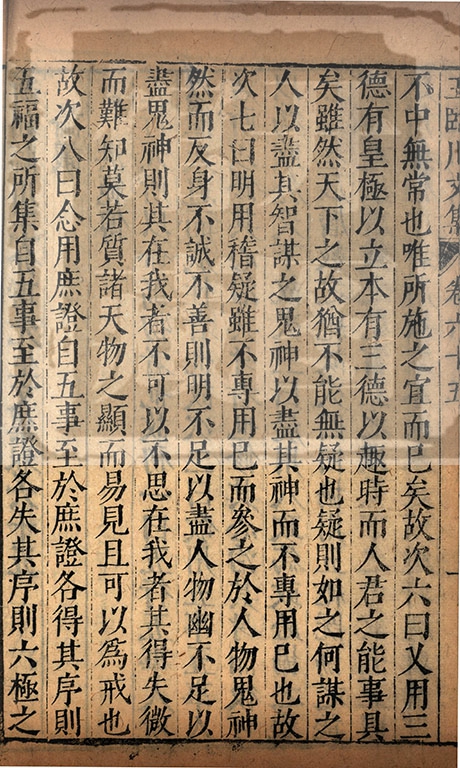 王臨川文集 卷六十五
不中無常也唯所施之宜而已矣故次六曰乂用三
德有皇極以立本有三德以趣時而人君之能事具
矣雖然天下之故猶不能無疑也疑則如之何謀之
人以盡其智謀之鬼神以盡其神而不專用已也故
次七曰明用稽疑雖不專用已而參之於人物鬼神
然而反身不誠不善則明不足以盡人物幽不足以
盡鬼神則其在我者不可以不思在我者其得失微
而難知莫若質諸天物之顯而易見且可以爲戒也
故次八曰念用庶證自五事至於庶證各得其序則
五福之所集自五事至於庶證各失其序則六極之